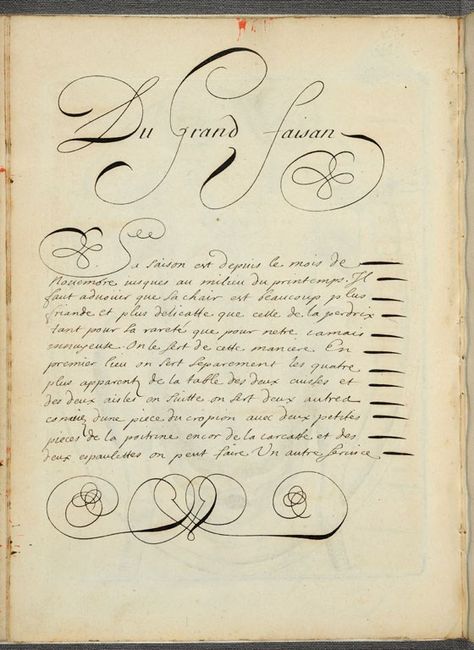 Du Grand faisan
Sa saison est depuis le mois de
Nouembre iusques au milieu du printemps. Il
faut aduouer que sa chair est beaucoup plus
friande et plus delicatte que celle de la perdrix
tant pour la rareté que pour n'etre iamais
ennuyeuse. On le sert de cette maniere. En
premier lieu on sert separement les quatre
plus apparent de la table des deux cuisses et
des deux aisles en suitte on sert deux autres
d'une piece du cropion auec deux petites
pieces de la poitrine encor de la carcasse et des
deux espaulettes on peut faire Un autre seruice